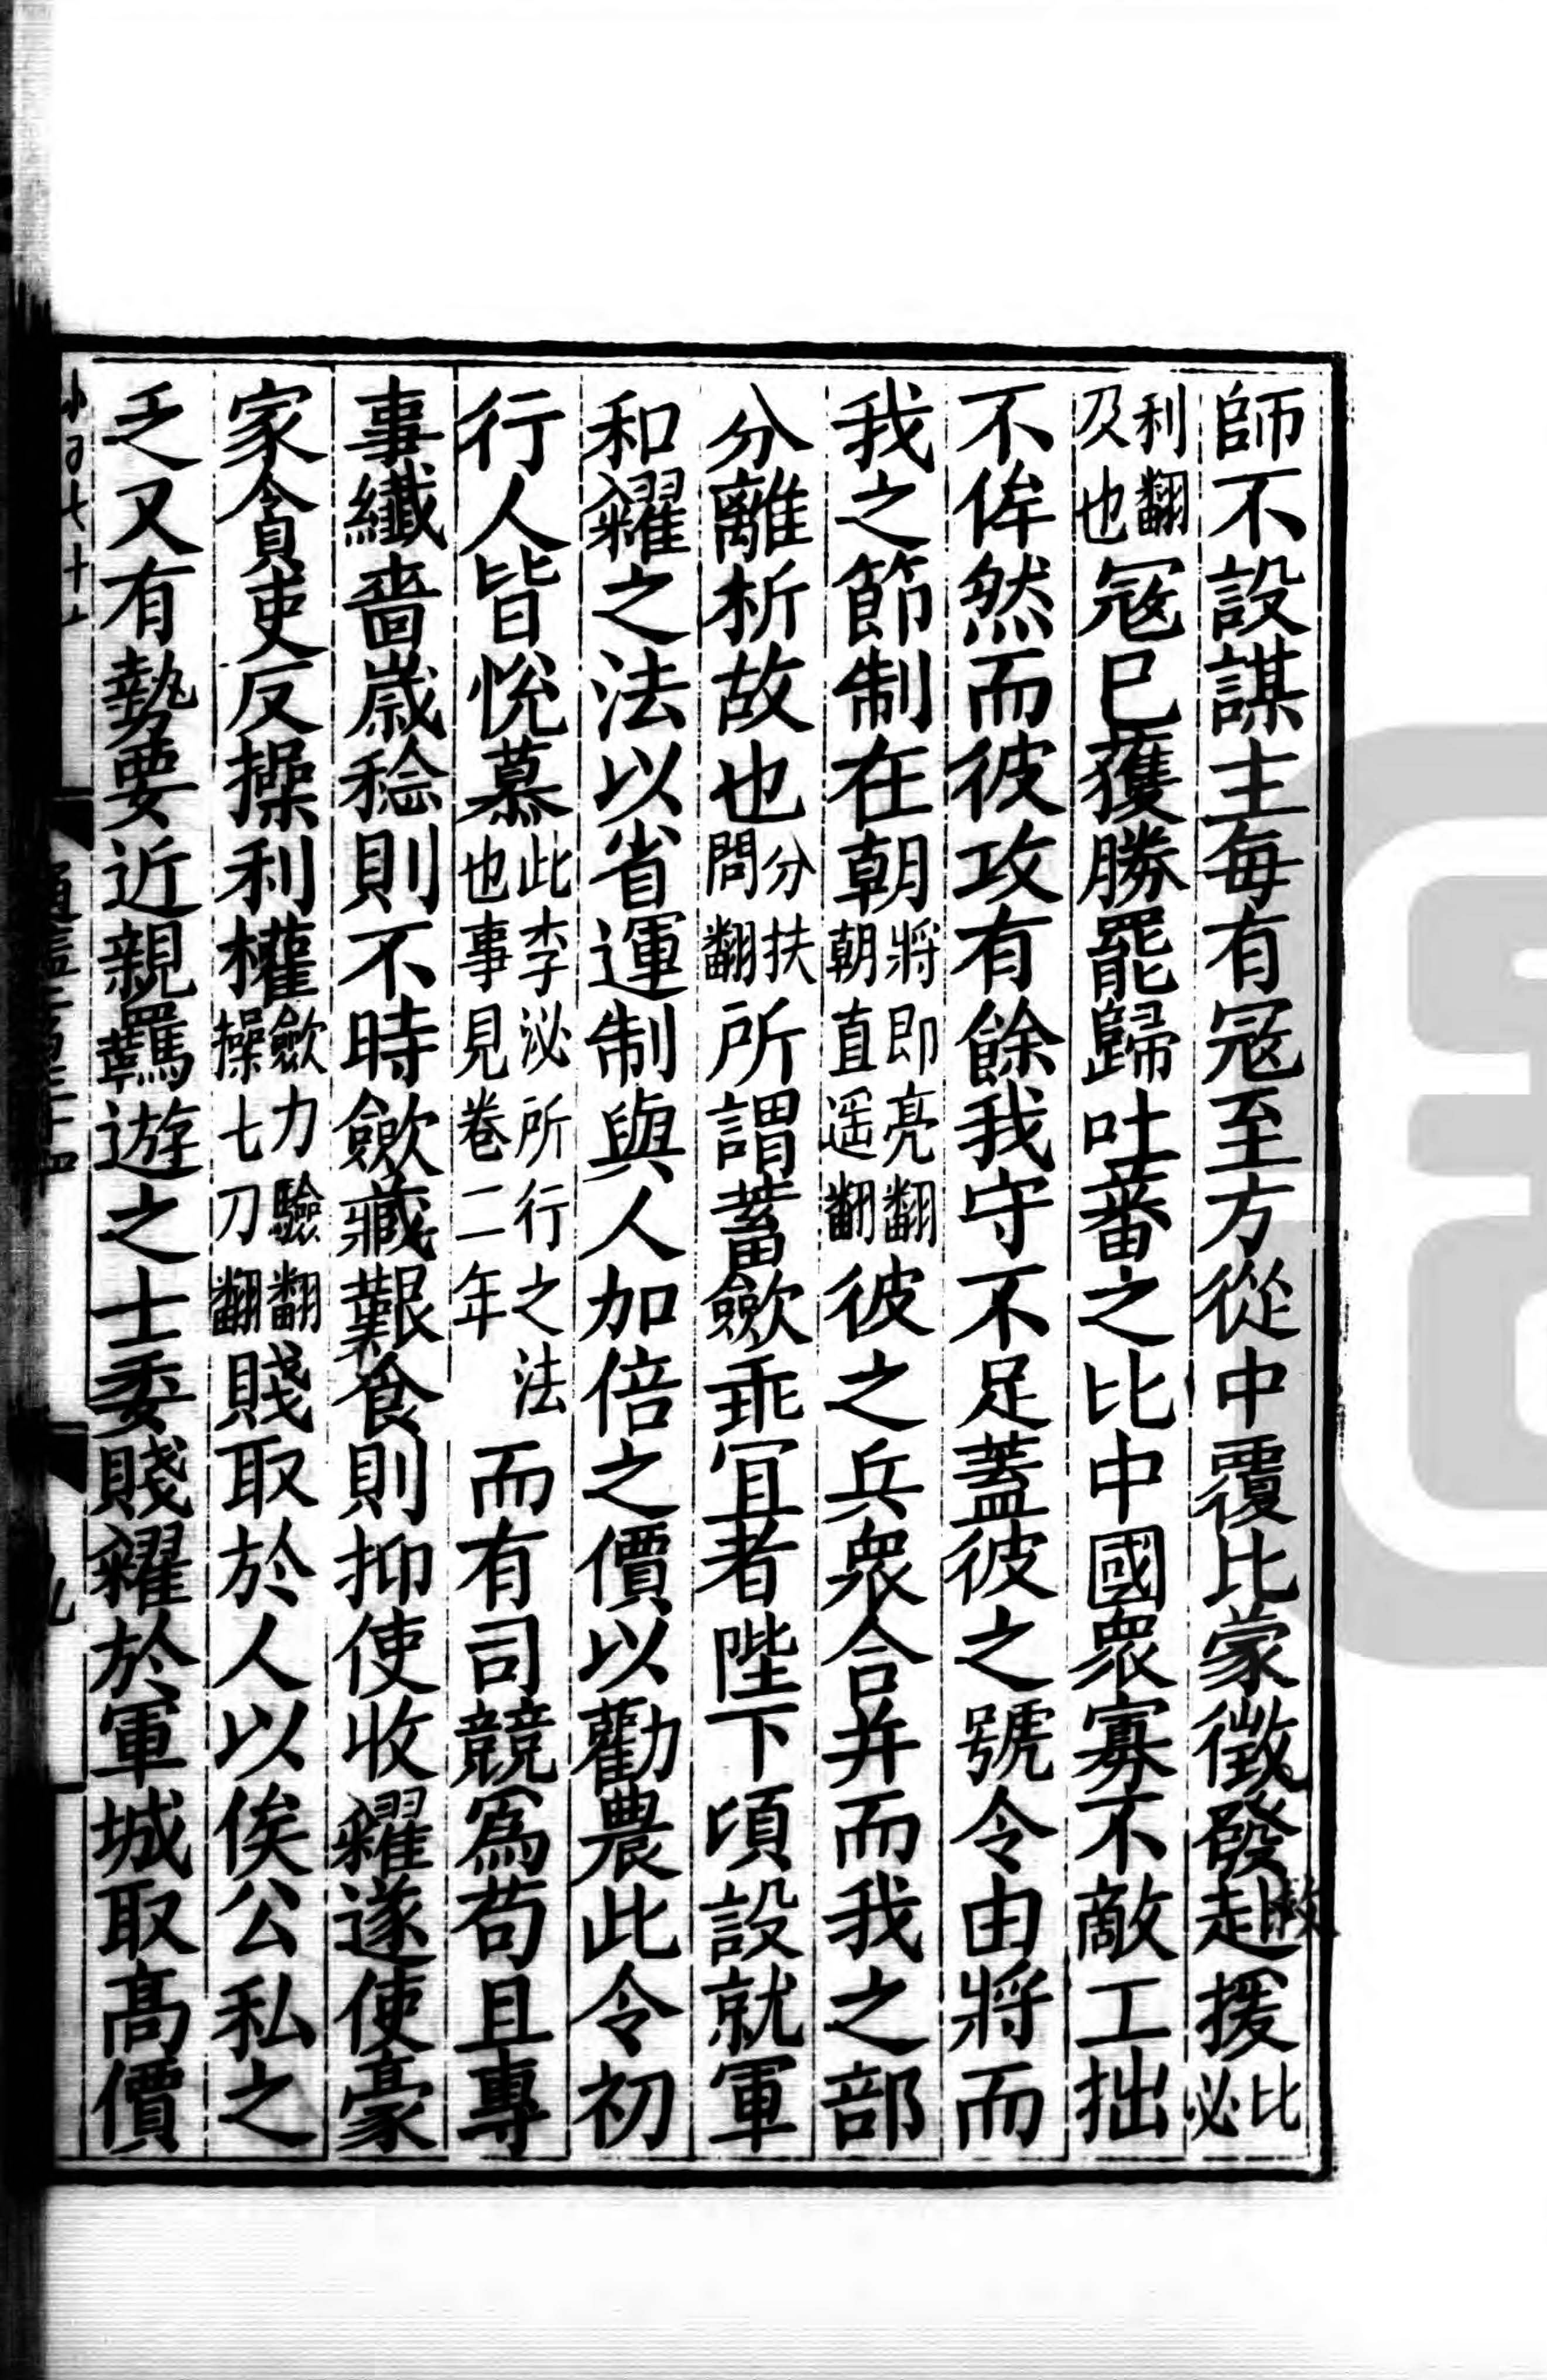 師不設謀主每有冦至方從中覆比蒙徵發赴援比必
利翻及也冦巳獲勝罷歸吐蕃之比中國衆寡不敵工拙
不侔然而彼攻有餘我守不足蓋彼之號令由將而
我之節制在朝將即亮翻朝直遥翻彼之兵衆合并而我之部
分離析故也分扶問翻所謂蓄歛乖宜者陛下頃設就軍
和糴之法以省運制與人加倍之價以勸農此令初
行人皆悅慕此李泌所行之法也事見卷二年而有司競爲苟且專
事纖嗇歲稔則不時歛藏艱食則抑使收糴遂使豪
家貪吏反操利權歛力驗翻操七刀翻賤取於人以俟公私之
乏又有勢要近親羈遊之士委賤糴於軍城取高價